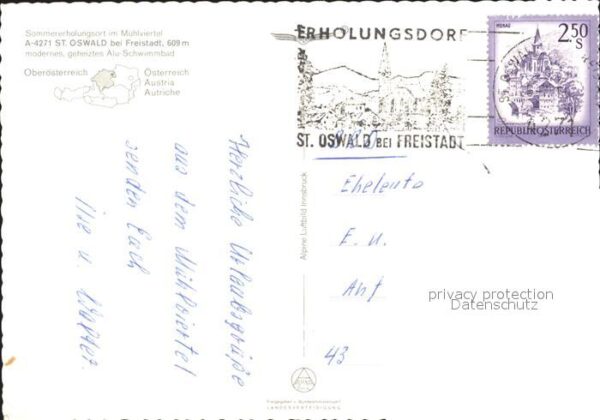 Sommererholungsort im Mühlviertel
A-4271 ST. OSWALD bei Freistadt, 609 m
modernes, geheiztes Alu-Schwimmbad
Oberösterreich
Österreich
Austria
Autriche
Herzliche Urlaubsgrüße
aus dem Mühlviertel
senden Euch
Ilse u. Walter.
Alpine Luftbild Innsbruck
ERHOLUNGSDORF
ST. OSWALD BEI FREISTADT
MURAU
2.50
S
REPUBLIK ÖSTERREICH
ST. OSWALD
Eheleute
E. u.
43
privacy protection
Datenschutz
LANDESVERTEIDIGUNG